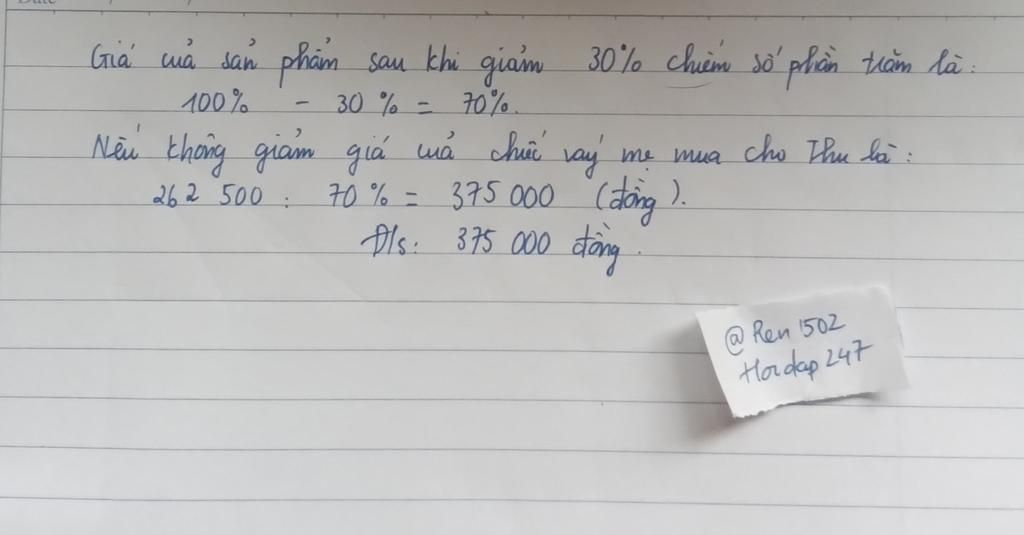 Date
Giá của sản phẩm sau khi giảm 30% chiếm số phần trăm là:
100% - 30% = 70%.
Nếu không giảm giá của chiếc váy mẹ mua cho Thu là:
262 500 : 70% = 375 000 (đồng).
Đ/s: 375 000 đồng.
@Ren1502
Hoidap247